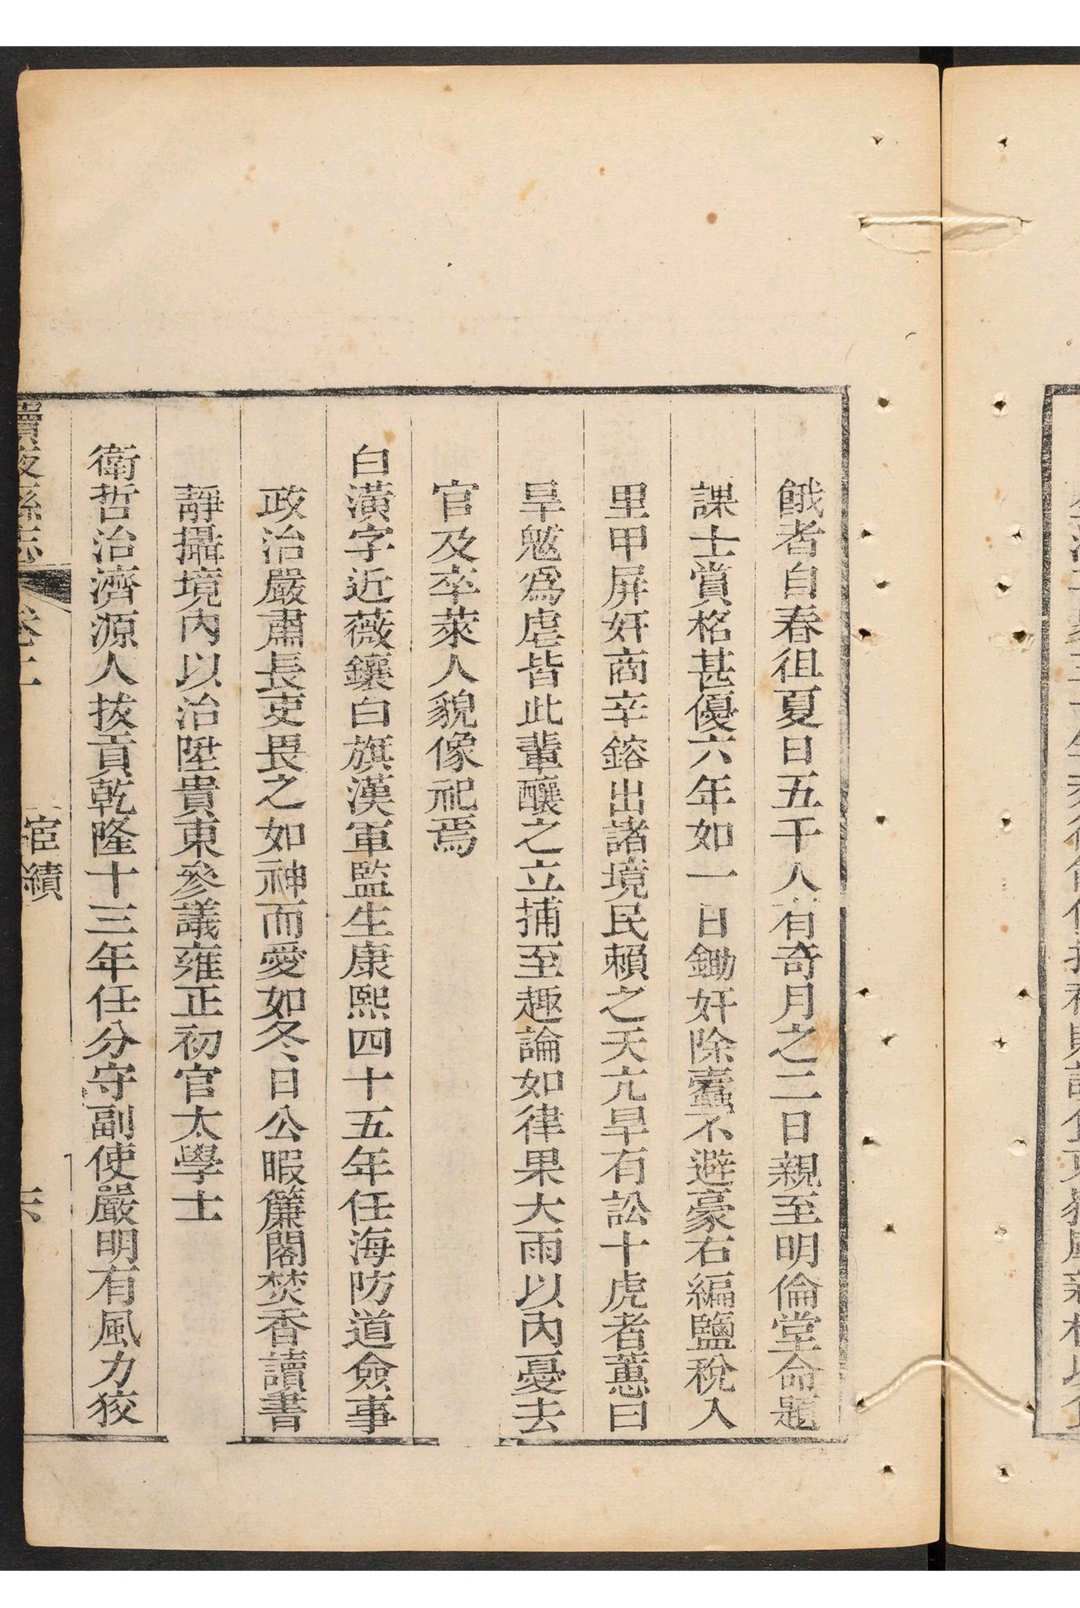 餓者自春徂夏日五千人有奇月之二日親至明倫堂命題
課士賞格甚優六年如一日鋤奸除蠹不避豪右編鹽稅入
里甲屏奸商辛鎔出諸境民賴之天亢旱有訟十虎者蕙曰
旱魃爲虐皆此輩釀之立捕至趣論如律果大雨以內憂去
官及卒萊人貌像祀焉
白潢字近薇鑲白旗漢軍監生康熙四十五年任海防道僉事
政治嚴肅長吏畏之如神而愛如冬日公暇簾閣焚香讀書
靜攝境內以治陞貴東參議雍正初官大學士
衛哲治濟源人拔貢乾隆十三年任分守副使嚴明有風力狡
續掖縣志 卷二 宦績 六